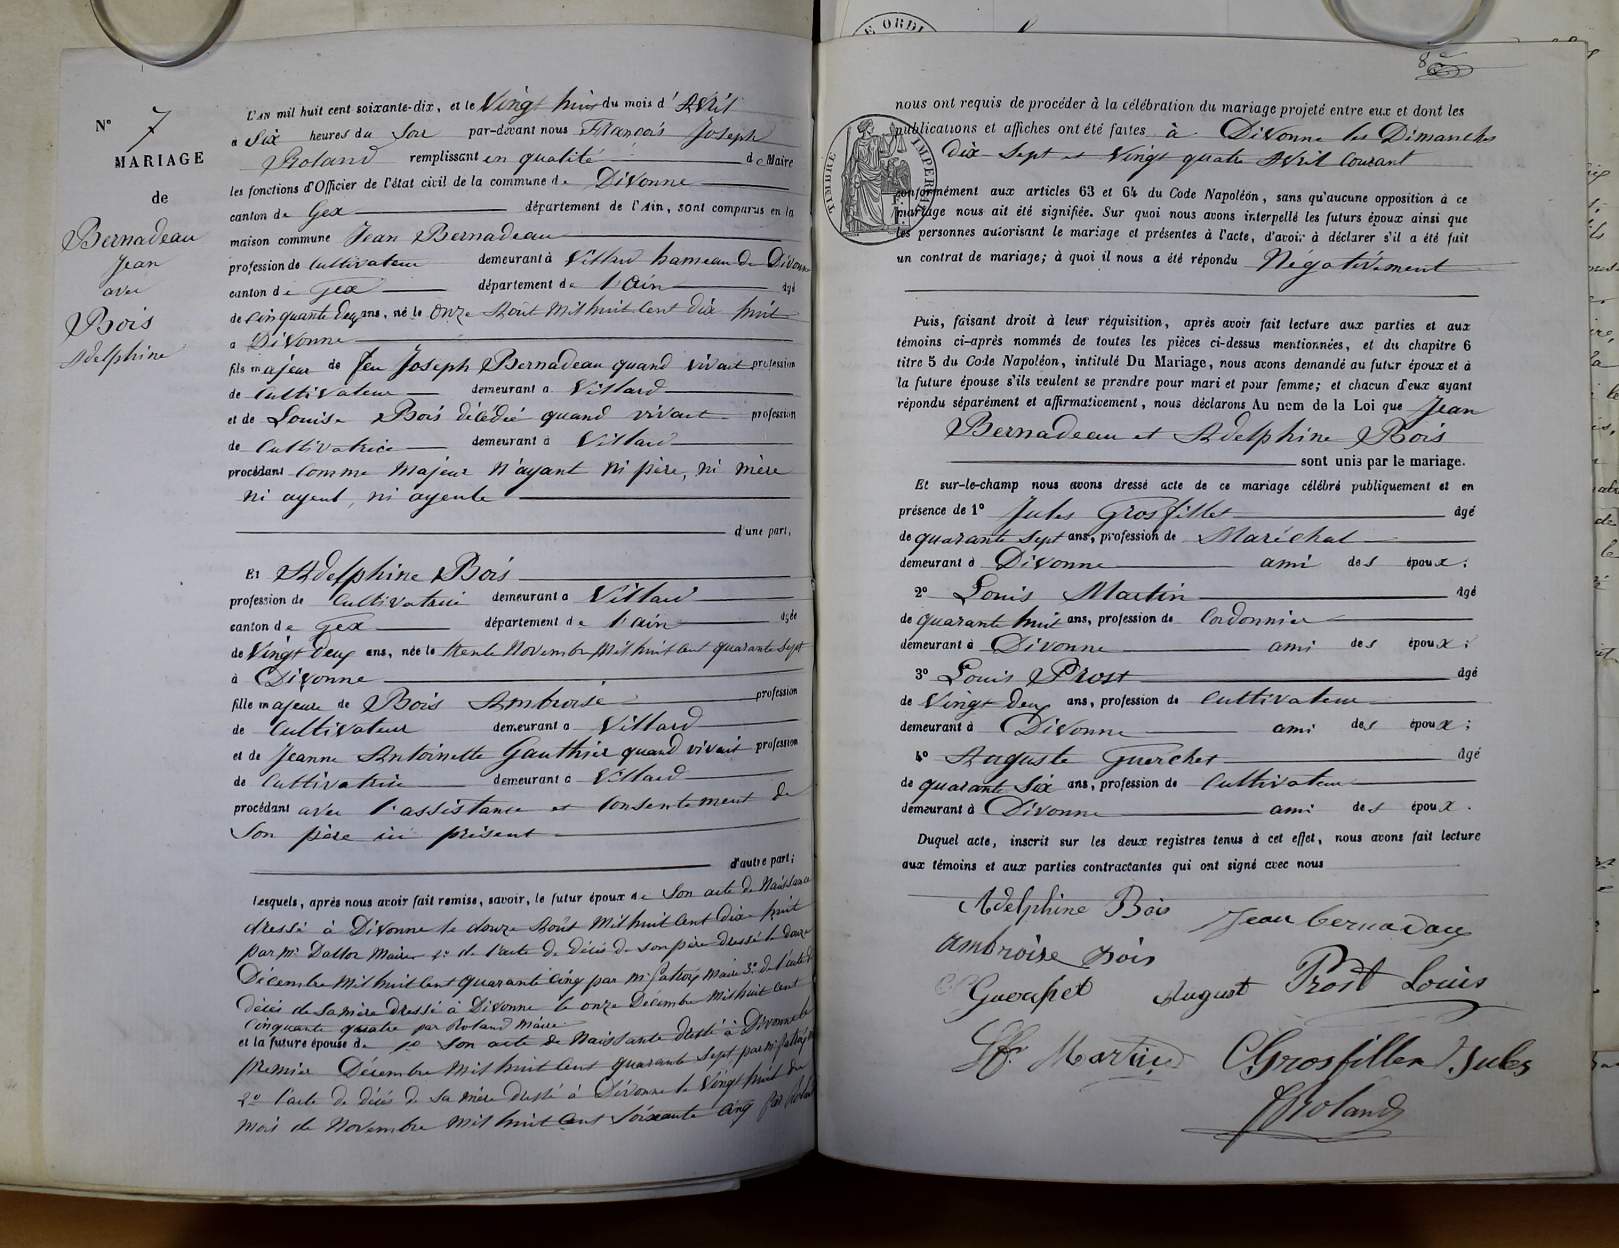 N° 7
MARIAGE
de
Bernadeau
Jean
avec
Bois
Adelphine
L'AN mil huit cent soixante-dix, et le Vingt huit du mois d'Avril
a Six heures du Soir par-devant nous François Joseph
Roland remplissant en qualité de Maire
les fonctions d'Officier de l'état civil de la commune de Divonne
canton de Gex département de l'Ain, sont comparus en la
maison commune Jean Bernadeau
profession de Cultivateur demeurant à Villard hameau de Divonne
canton de Gex département de l'Ain âgé
de Cinquante deux ans, né le Onze Août Mil huit Cent dix huit
a Divonne
fils majeur de feu Joseph Bernadeau quand vivait profession
de Cultivateur demeurant a Villard
et de Louise Bois décédée quand vivait profession
de Cultivatrice demeurant à Villard
procédant comme Majeur N'ayant ni père, ni mère
ni ayeul, ni ayeule
d'une part,
Et Adelphine Bois
profession de Cultivatrice demeurant a Villard
canton de Gex département de l'ain âgée
de Vingt deux ans, née le trente Novembre Mil huit Cent quarante Sept
à Divonne
fille majeure de Bois Ambroise profession
de Cultivateur demeurant a Villard
et de Jeanne Antoinette Gauthier quand vivait profession
de Cultivatrice demeurant à Villard
procédant avec l'assistance et Consentement de
Son père ici présent
d'autre part;
Lesquels, après nous avoir fait remise, savoir, le futur époux de Son acte de Naissance
dressé à Divonne le douze Août Mil huit Cent Dix huit
par Mr Maire 2° de l'acte de décès de son père dressé le douze
Décembre Mil huit Cent quarante Cinq par Mr Maire 3° de l'acte de
décès de Sa mère dressé à Divonne le onze Décembre Mil huit Cent
Cinquante quatre par Roland Maire
et la future épouse de 1° Son acte de Naissance dressé à Divonne le
premier Décembre Mil huit Cent quarante Sept par Mr
2° l'acte de décès de Sa mère dressé à Divonne le Vingt huit du
Mois de Novembre Mil huit Cent Soixante Cinq par Roland
8
nous ont requis de procéder à la célébration du mariage projeté entre eux et dont les
publications et affiches ont été faites à Divonne les Dimanches
dix Sept et Vingt quatre Avril Courant
TIMBRE IMPERIAL
conformément aux articles 63 et 64 du Code Napoléon, sans qu'aucune opposition à ce
mariage nous ait été signifiée. Sur quoi nous avons interpellé les futurs époux ainsi que
les personnes autorisant le mariage et présentes à l'acte, d'avoir à déclarer s'il a été fait
un contrat de mariage; à quoi il nous a été répondu Negativement
Puis, faisant droit à leur réquisition, après avoir fait lecture aux parties et aux
témoins ci-après nommés de toutes les pièces ci-dessus mentionnées, et du chapitre 6
titre 5 du Code Napoléon, intitulé Du Mariage, nous avons demandé au futur époux et à
la future épouse s'ils veulent se prendre pour mari et pour femme; et chacun d'eux ayant
répondu séparément et affirmativement, nous déclarons Au nom de la Loi que Jean
Bernadeau et Adelphine Bois
sont unis par le mariage.
Et sur-le-champ nous avons dressé acte de ce mariage célébré publiquement et en
présence de 1° Jules Grosfillet âgé
de quarante Sept ans, profession de Maréchal
demeurant à Divonne ami des époux;
2° Louis Martin âgé
de quarante huit ans, profession de Cordonnier
demeurant à Divonne ami des époux;
3° Louis Prost âgé
de Vingt deux ans, profession de Cultivateur
demeurant à Divonne ami des époux;
4° Auguste Guerchet âgé
de quarante Six ans, profession de Cultivateur
demeurant à Divonne ami des époux.
Duquel acte, inscrit sur les deux registres tenus à cet effet, nous avons fait lecture
aux témoins et aux parties contractantes qui ont signé avec nous
Adelphine Bois Jean bernadau
ambroise bois
August Prost Louis
Martin Jules
Roland